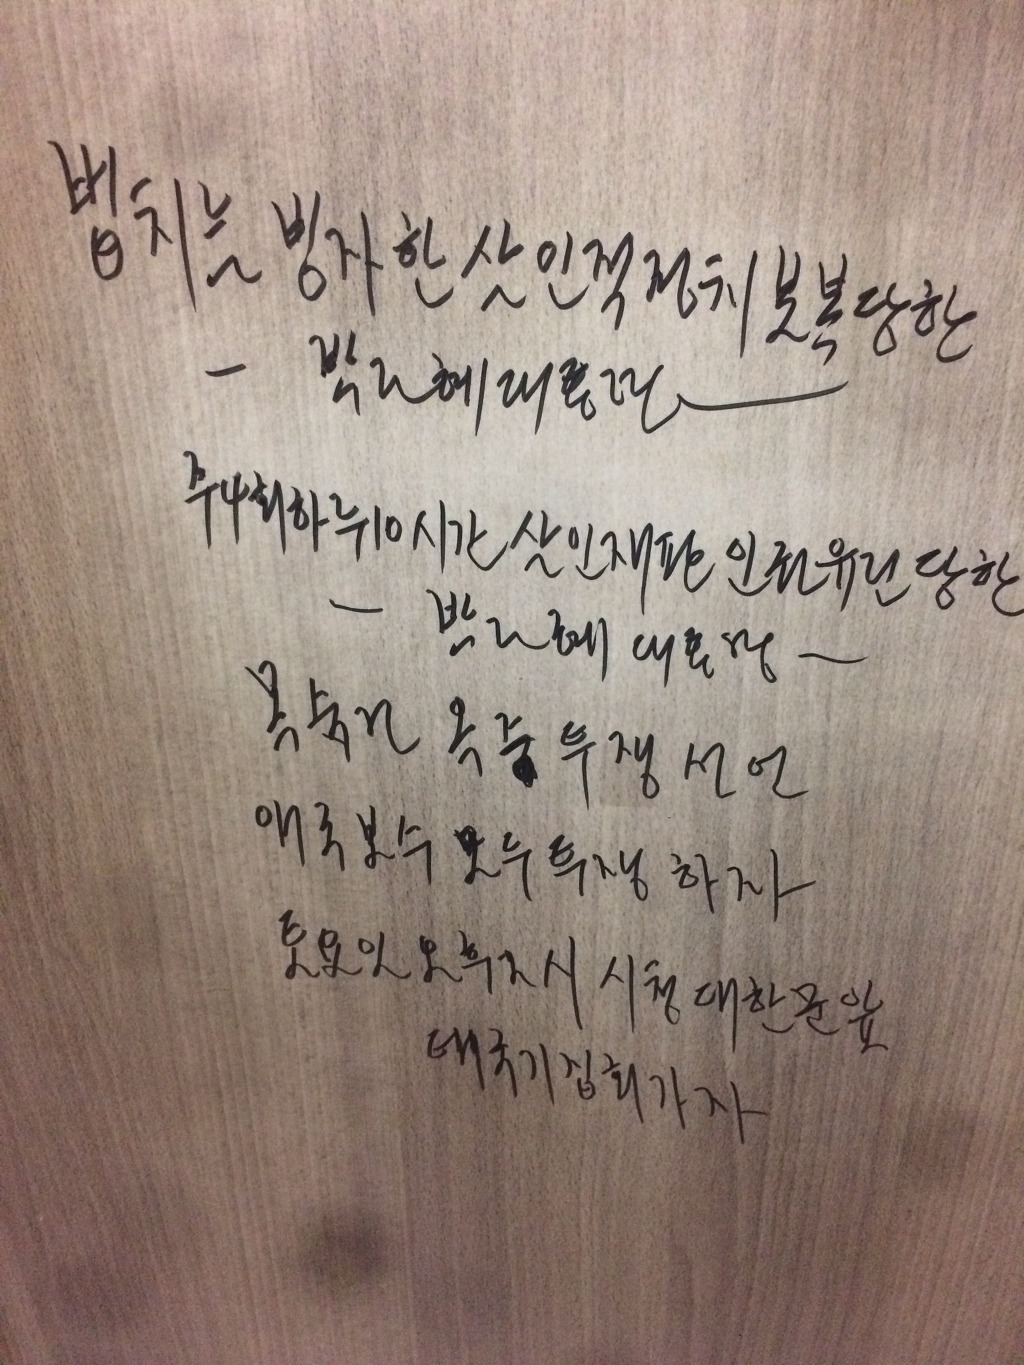 법치는 빙자한 살인적정치보복당한
- 박근혜대통령
주4회하루10시간 살인재판 인권유린 당한
- 박근혜 대통령 -
옥중 투쟁 선언
애국보수 모두 투쟁 하자
토요일 오후2시 시청 대한문앞
태극기집회가자